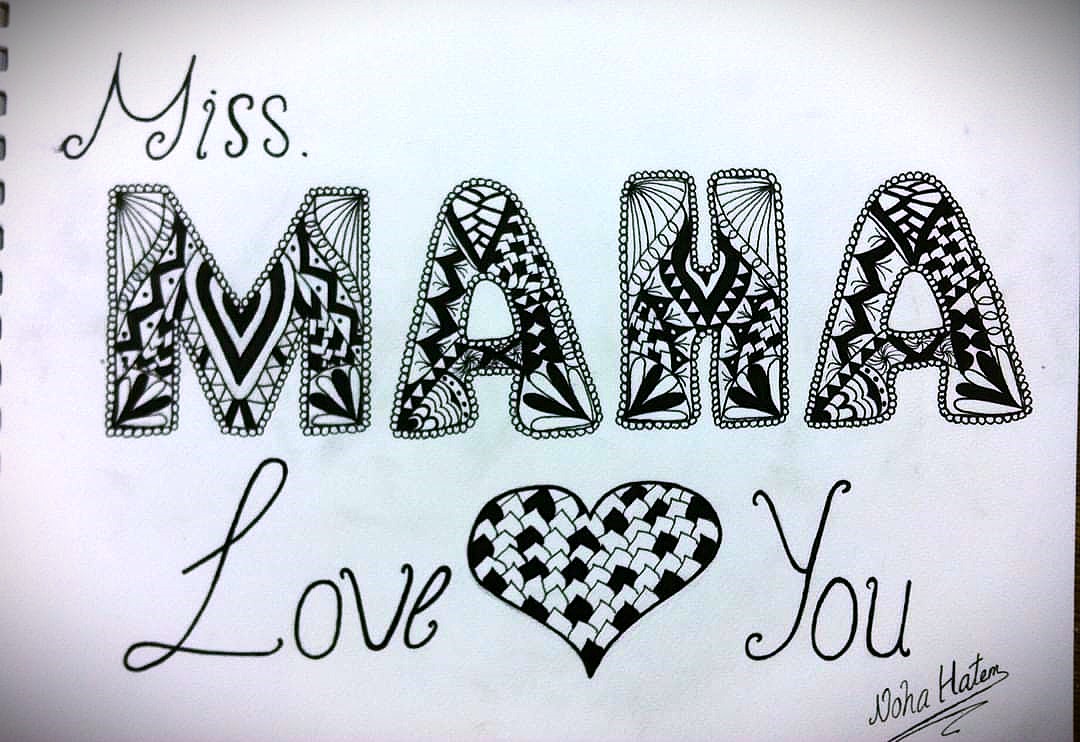 Miss.
MAHA
Love You
Noha Hatem